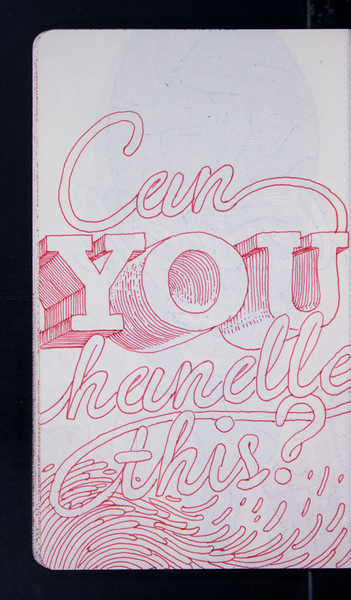 Can
YOU
handle
this?